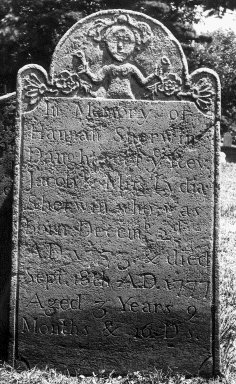 In Memory of
Hannah Sherwin
Daughter of yͤ Rev.
Jacob & Mrs Lydia
Sherwin who was
born Decem. 2d
A.D. 1773 & died
Sept. 18th A.D. 1777
Aged 3 Years 9
Months & 16 Ds